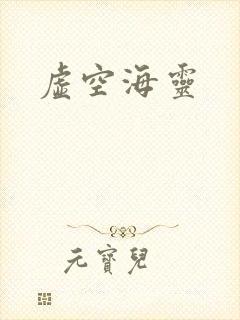 虛空海靈
元寶兒